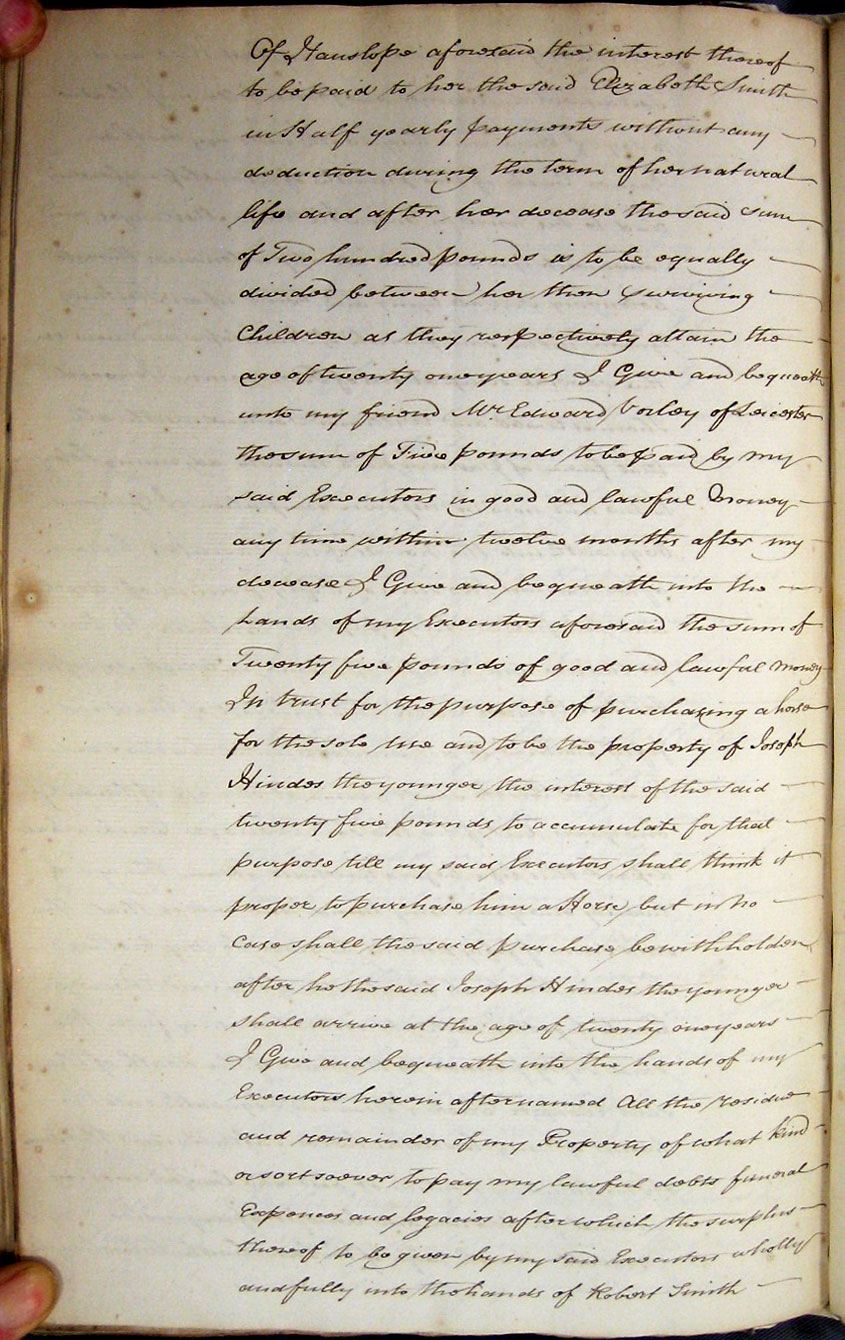 Of Hanslope aforesaid the interest thereof
to be paid to her the said Elizabeth Smith
in Half yearly payments without any
deduction during the term of her natural
life and after her decease the said sum
of Two hundred pounds is to be equally
divided between her then surviving
Children as they respectively attain the
age of twenty one years I Give and bequeath
unto my friend Mr. Edward Vorley of Leicester
the sum of Five pounds to be paid by my
said Executors in good and lawful Money
any time within twelve months after my
decease I Give and bequeath into the
hands of my Executors aforesaid the sum of
Twenty five pounds of good and lawful money
In trust for the purpose of purchasing a horse
for the sole use and to be the property of Joseph
Hindes the younger the interest of the said
twenty five pounds to accumulate for that
purpose till my said Executors shall think it
proper to purchase him a Horse but in no
Case shall the said purchase be withholden
after he the said Joseph Hindes the younger
shall arrive at the age of twenty one years
I Give and bequeath into the hands of my
Executors herein after named All the residue
and remainder of my Property of what kind
or sort soever to pay my lawful debts funeral
Expences and legacies after which the surplus
thereof to be given by my said Executors wholly
and fully into the hands of Robert Smith